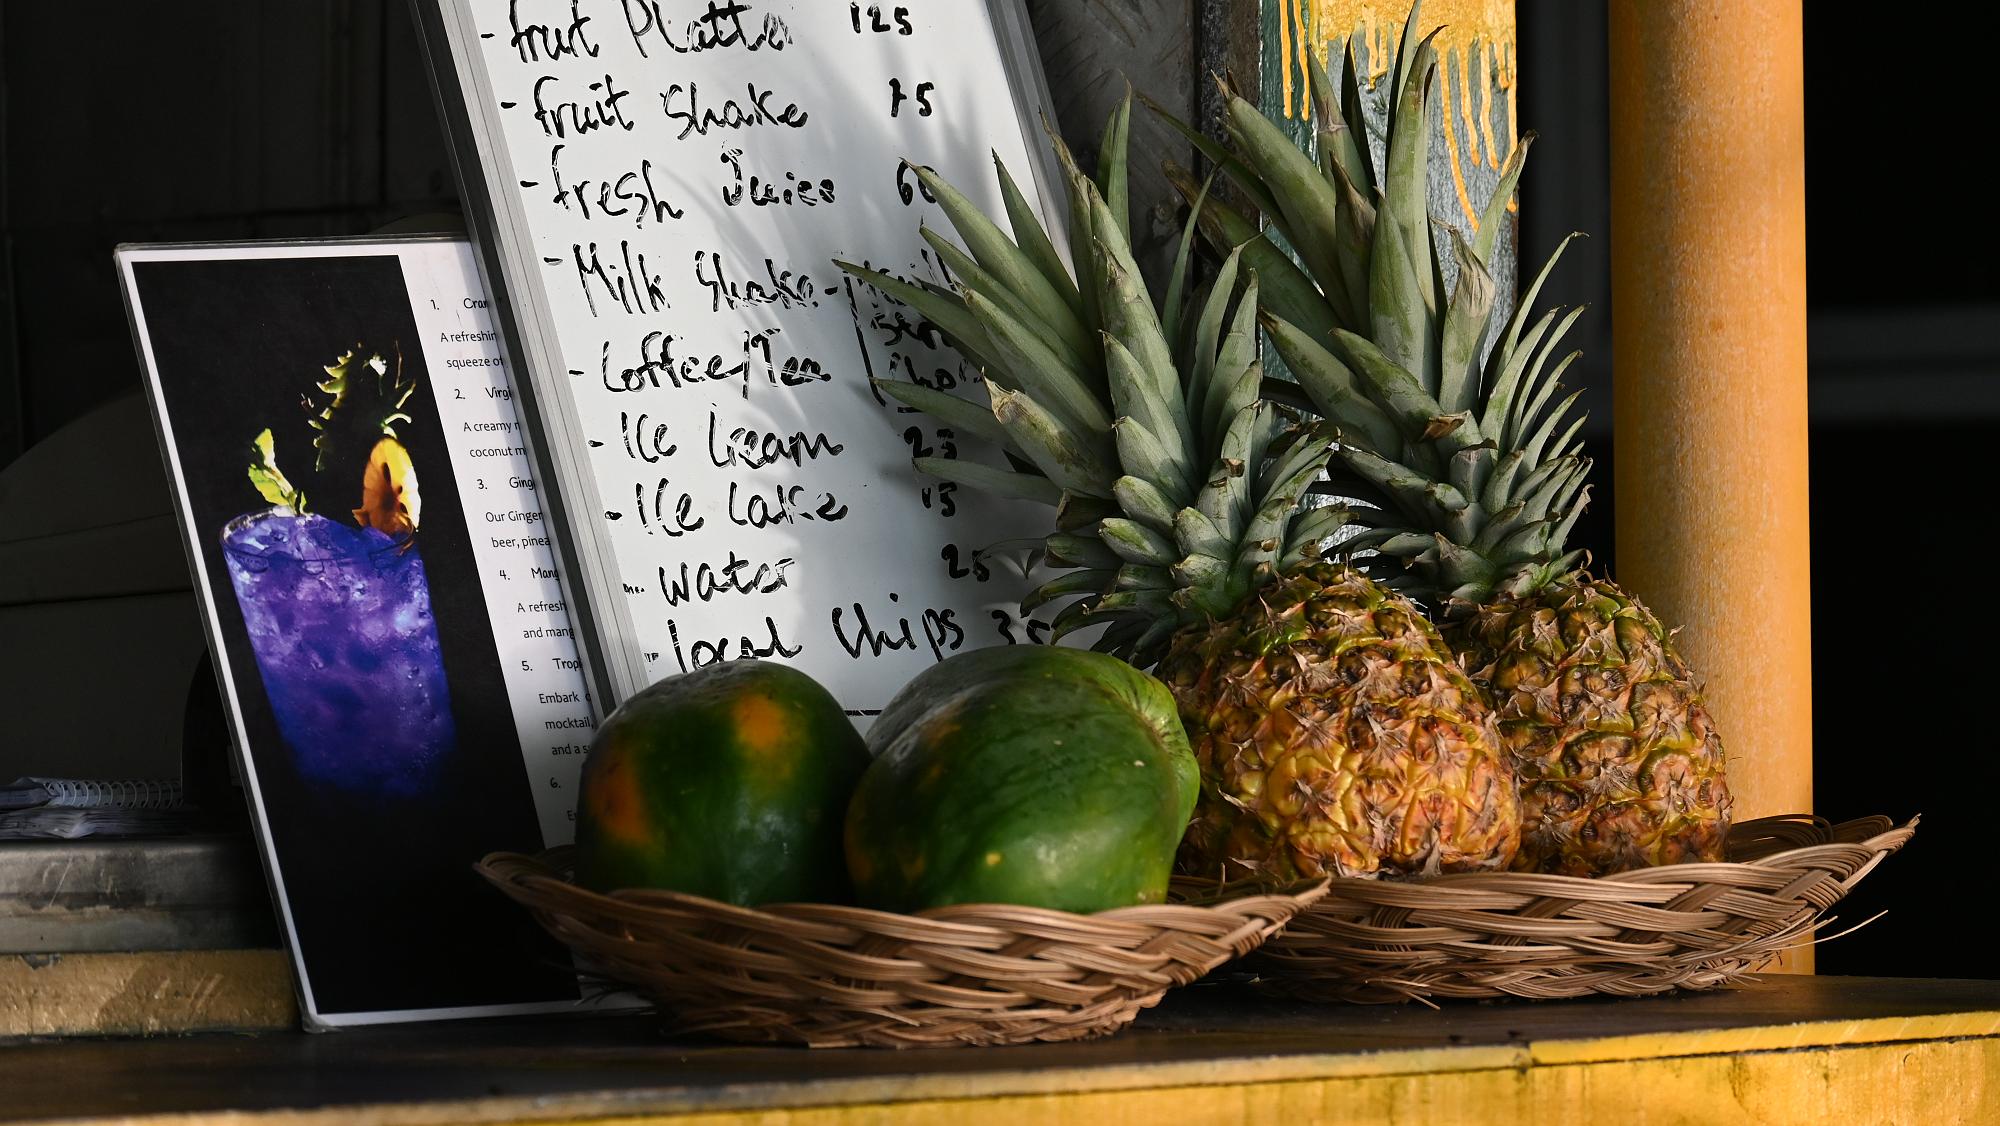 - fruit Platter 125
- fruit Shake 75
- fresh Juice 60
- Milk Shake -
- Coffee/Tea
- Ice Cream 25
- Ice Cake 15
- Water 25
- local Chips 35
1.
A refreshin
squeeze of
2. Virgi
A creamy
coconut m
3. Ging
Our Ginger
beer, pinea
4. Mang
A refresh
and mang
5. Trop
Embark
mocktail,
and a s
6.